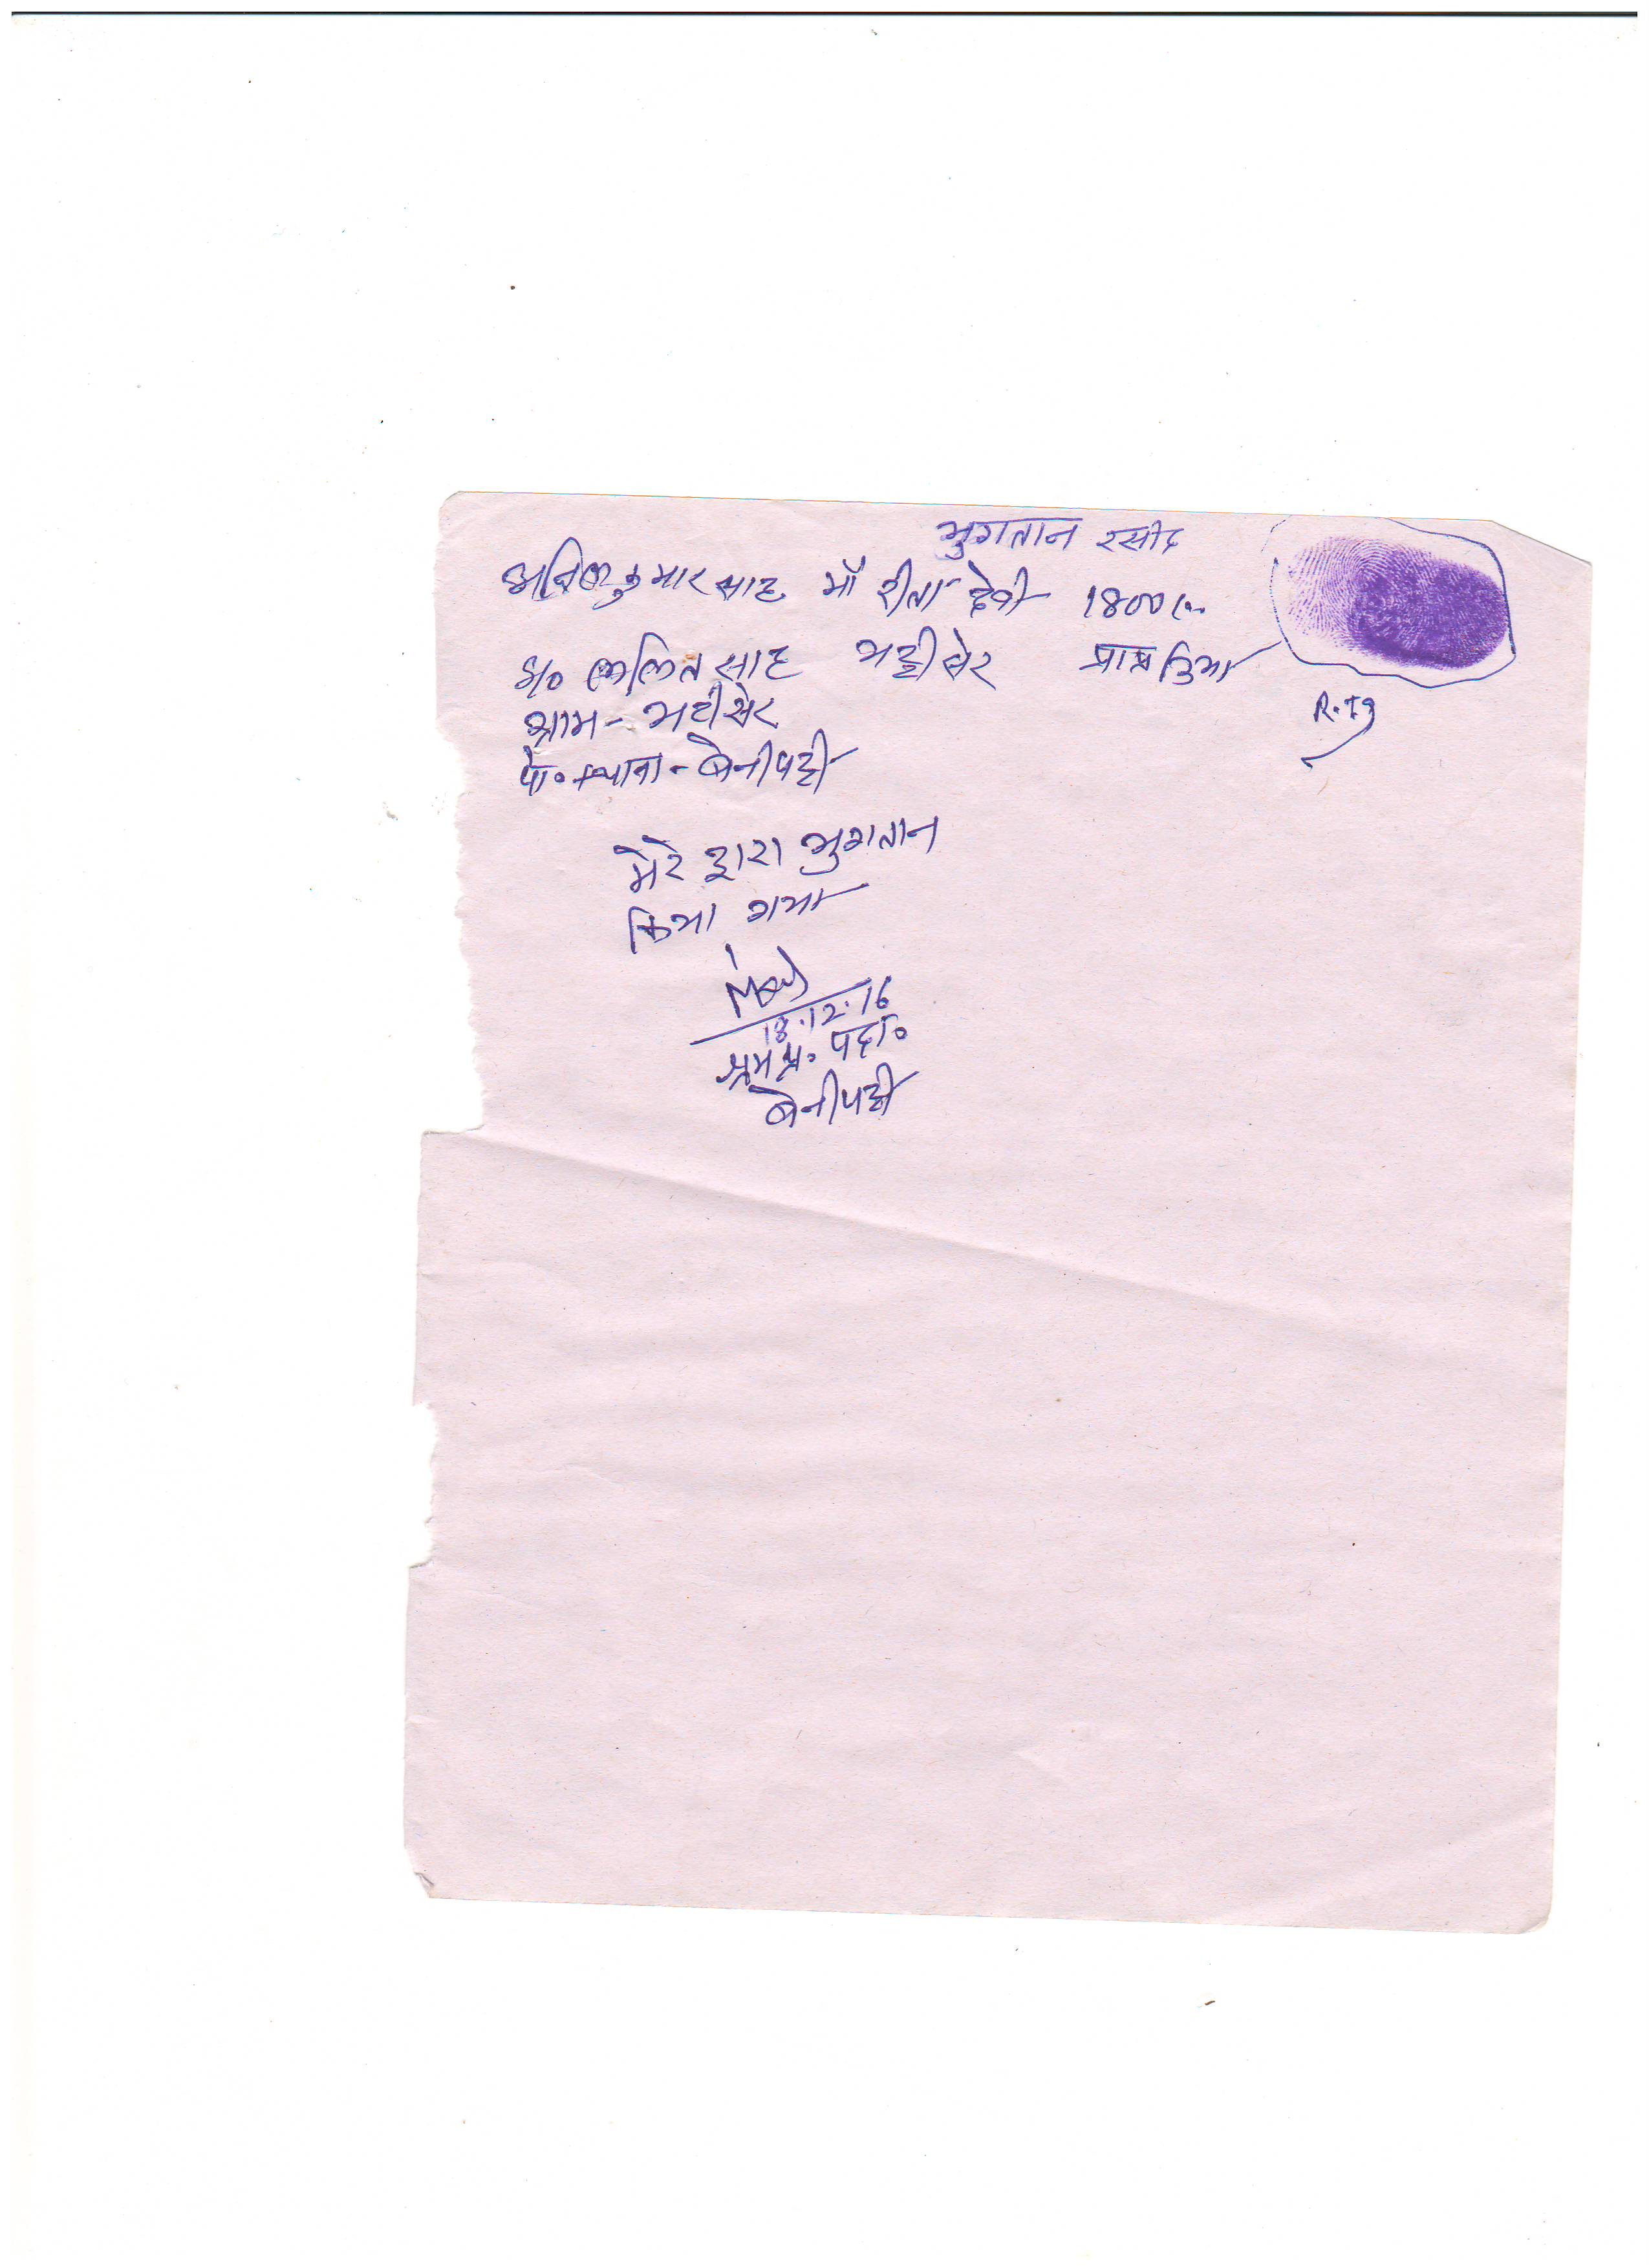 भुगतान रसीद
अनिल कुमार साह माँ रीता देवी 1800/-
S/o ललित साह भटहीसेर प्राप्त किया
ग्राम - भटहीसेर
पो० थाना - बेनीपट्टी
R.T.I
मेरे द्वारा भुगतान
किया गया
18.12.16
श्रम प्र० पदा०
बेनीपट्टी